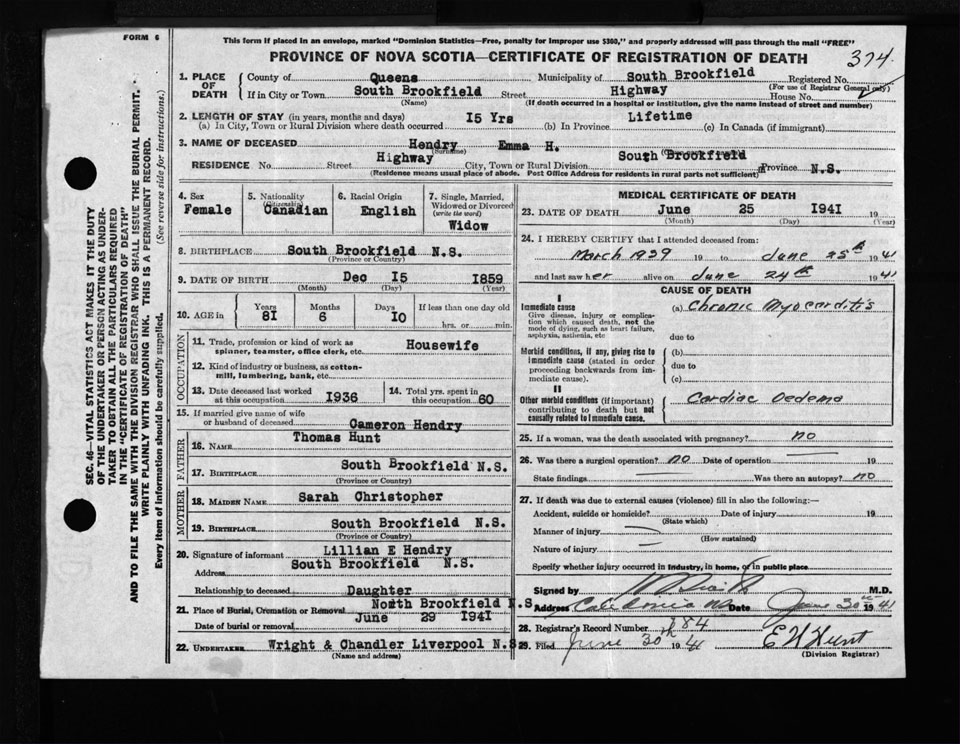 FORM 6
This form if placed in an envelope, marked "Dominion Statistics—Free, penalty for improper use $300," and properly addressed will pass through the mail "FREE"
PROVINCE OF NOVA SCOTIA—CERTIFICATE OF REGISTRATION OF DEATH
374
1. PLACE OF DEATH County of Queens Municipality of South Brookfield Registered No.
(For use of Registrar General only)
If in City or Town South Brookfield Street Highway House No.
(Name) (If death occurred in a hospital or institution, give the name instead of street and number)
2. LENGTH OF STAY (in years, months and days)
(a) In City, Town or Rural Division where death occurred 15 Yrs (b) In Province Lifetime (c) In Canada (if immigrant)
3. NAME OF DECEASED Hendry Emma H.
(Surname)
RESIDENCE No. Street Highway City, Town or Rural Division South Brookfield Province N.S.
(Residence means usual place of abode. Post Office Address for residents in rural parts not sufficient)
4. Sex Female
5. Nationality (Citizenship) Canadian
6. Racial Origin English
7. Single, Married, Widowed or Divorced (write the word) Widow
8. BIRTHPLACE South Brookfield N.S.
(Province or Country)
9. DATE OF BIRTH Dec 15 1859
(Month) (Day) (Year)
10. AGE in Years 81 Months 6 Days 10 If less than one day old hrs. or min.
OCCUPATION
11. Trade, profession or kind of work as spinner, teamster, office clerk, etc. Housewife
12. Kind of industry or business, as cotton-mill, lumbering, bank, etc.
13. Date deceased last worked at this occupation 1936
14. Total yrs. spent in this occupation 60
15. If married give name of wife or husband of deceased Cameron Hendry
FATHER
16. NAME Thomas Hunt
17. BIRTHPLACE South Brookfield N.S.
(Province or Country)
MOTHER
18. MAIDEN NAME Sarah Christopher
19. BIRTHPLACE South Brookfield N.S.
(Province or Country)
20. Signature of informant Lillian E Hendry
Address South Brookfield N.S.
Relationship to deceased Daughter
21. Place of Burial, Cremation or Removal North Brookfield N.S
Date of burial or removal June 29 1941
22. UNDERTAKER Wright & Chandler Liverpool N.S
(Name and address)
MEDICAL CERTIFICATE OF DEATH
23. DATE OF DEATH June 25 1941 19
(Month) (Day) (Year)
24. I HEREBY CERTIFY that I attended deceased from:
March 1939 19 to June 25th 1941
and last saw her alive on June 24th 1941
CAUSE OF DEATH
I
Immediate cause
Give disease, injury or complication which caused death, not the mode of dying, such as heart failure, asphyxia, asthenia, etc
(a) Chronic Myocarditis
due to
Morbid conditions, if any, giving rise to immediate cause (stated in order proceeding backwards from immediate cause).
(b)
due to
(c)
II
Other morbid conditions (if important) contributing to death but not causally related to immediate cause.
Cardiac Oedema
25. If a woman, was the death associated with pregnancy? no
26. Was there a surgical operation? no Date of operation 19
State findings Was there an autopsy? no
27. If death was due to external causes (violence) fill in also the following:—
Accident, suicide or homicide? Date of injury 19
(State which)
Manner of injury
(How sustained)
Nature of injury
Specify whether injury occurred in industry, in home, or in public place
Signed by M.D.
Address Caledonia NS Date June 30th 1941
28. Registrar's Record Number 184
29. Filed June 30th 1941 E W Hunt
(Division Registrar)
SEC. 46—VITAL STATISTICS ACT MAKES IT THE DUTY
OF THE UNDERTAKER OR PERSON ACTING AS UNDER-
TAKER TO OBTAIN ALL THE PARTICULARS REQUIRED
IN THE "CERTIFICATE OF REGISTRATION OF DEATH"
AND TO FILE THE SAME WITH THE DIVISION REGISTRAR WHO SHALL ISSUE THE BURIAL PERMIT.
WRITE PLAINLY WITH UNFADING INK. THIS IS A PERMANENT RECORD.
Every item of information should be carefully supplied. (See reverse side for instructions.)